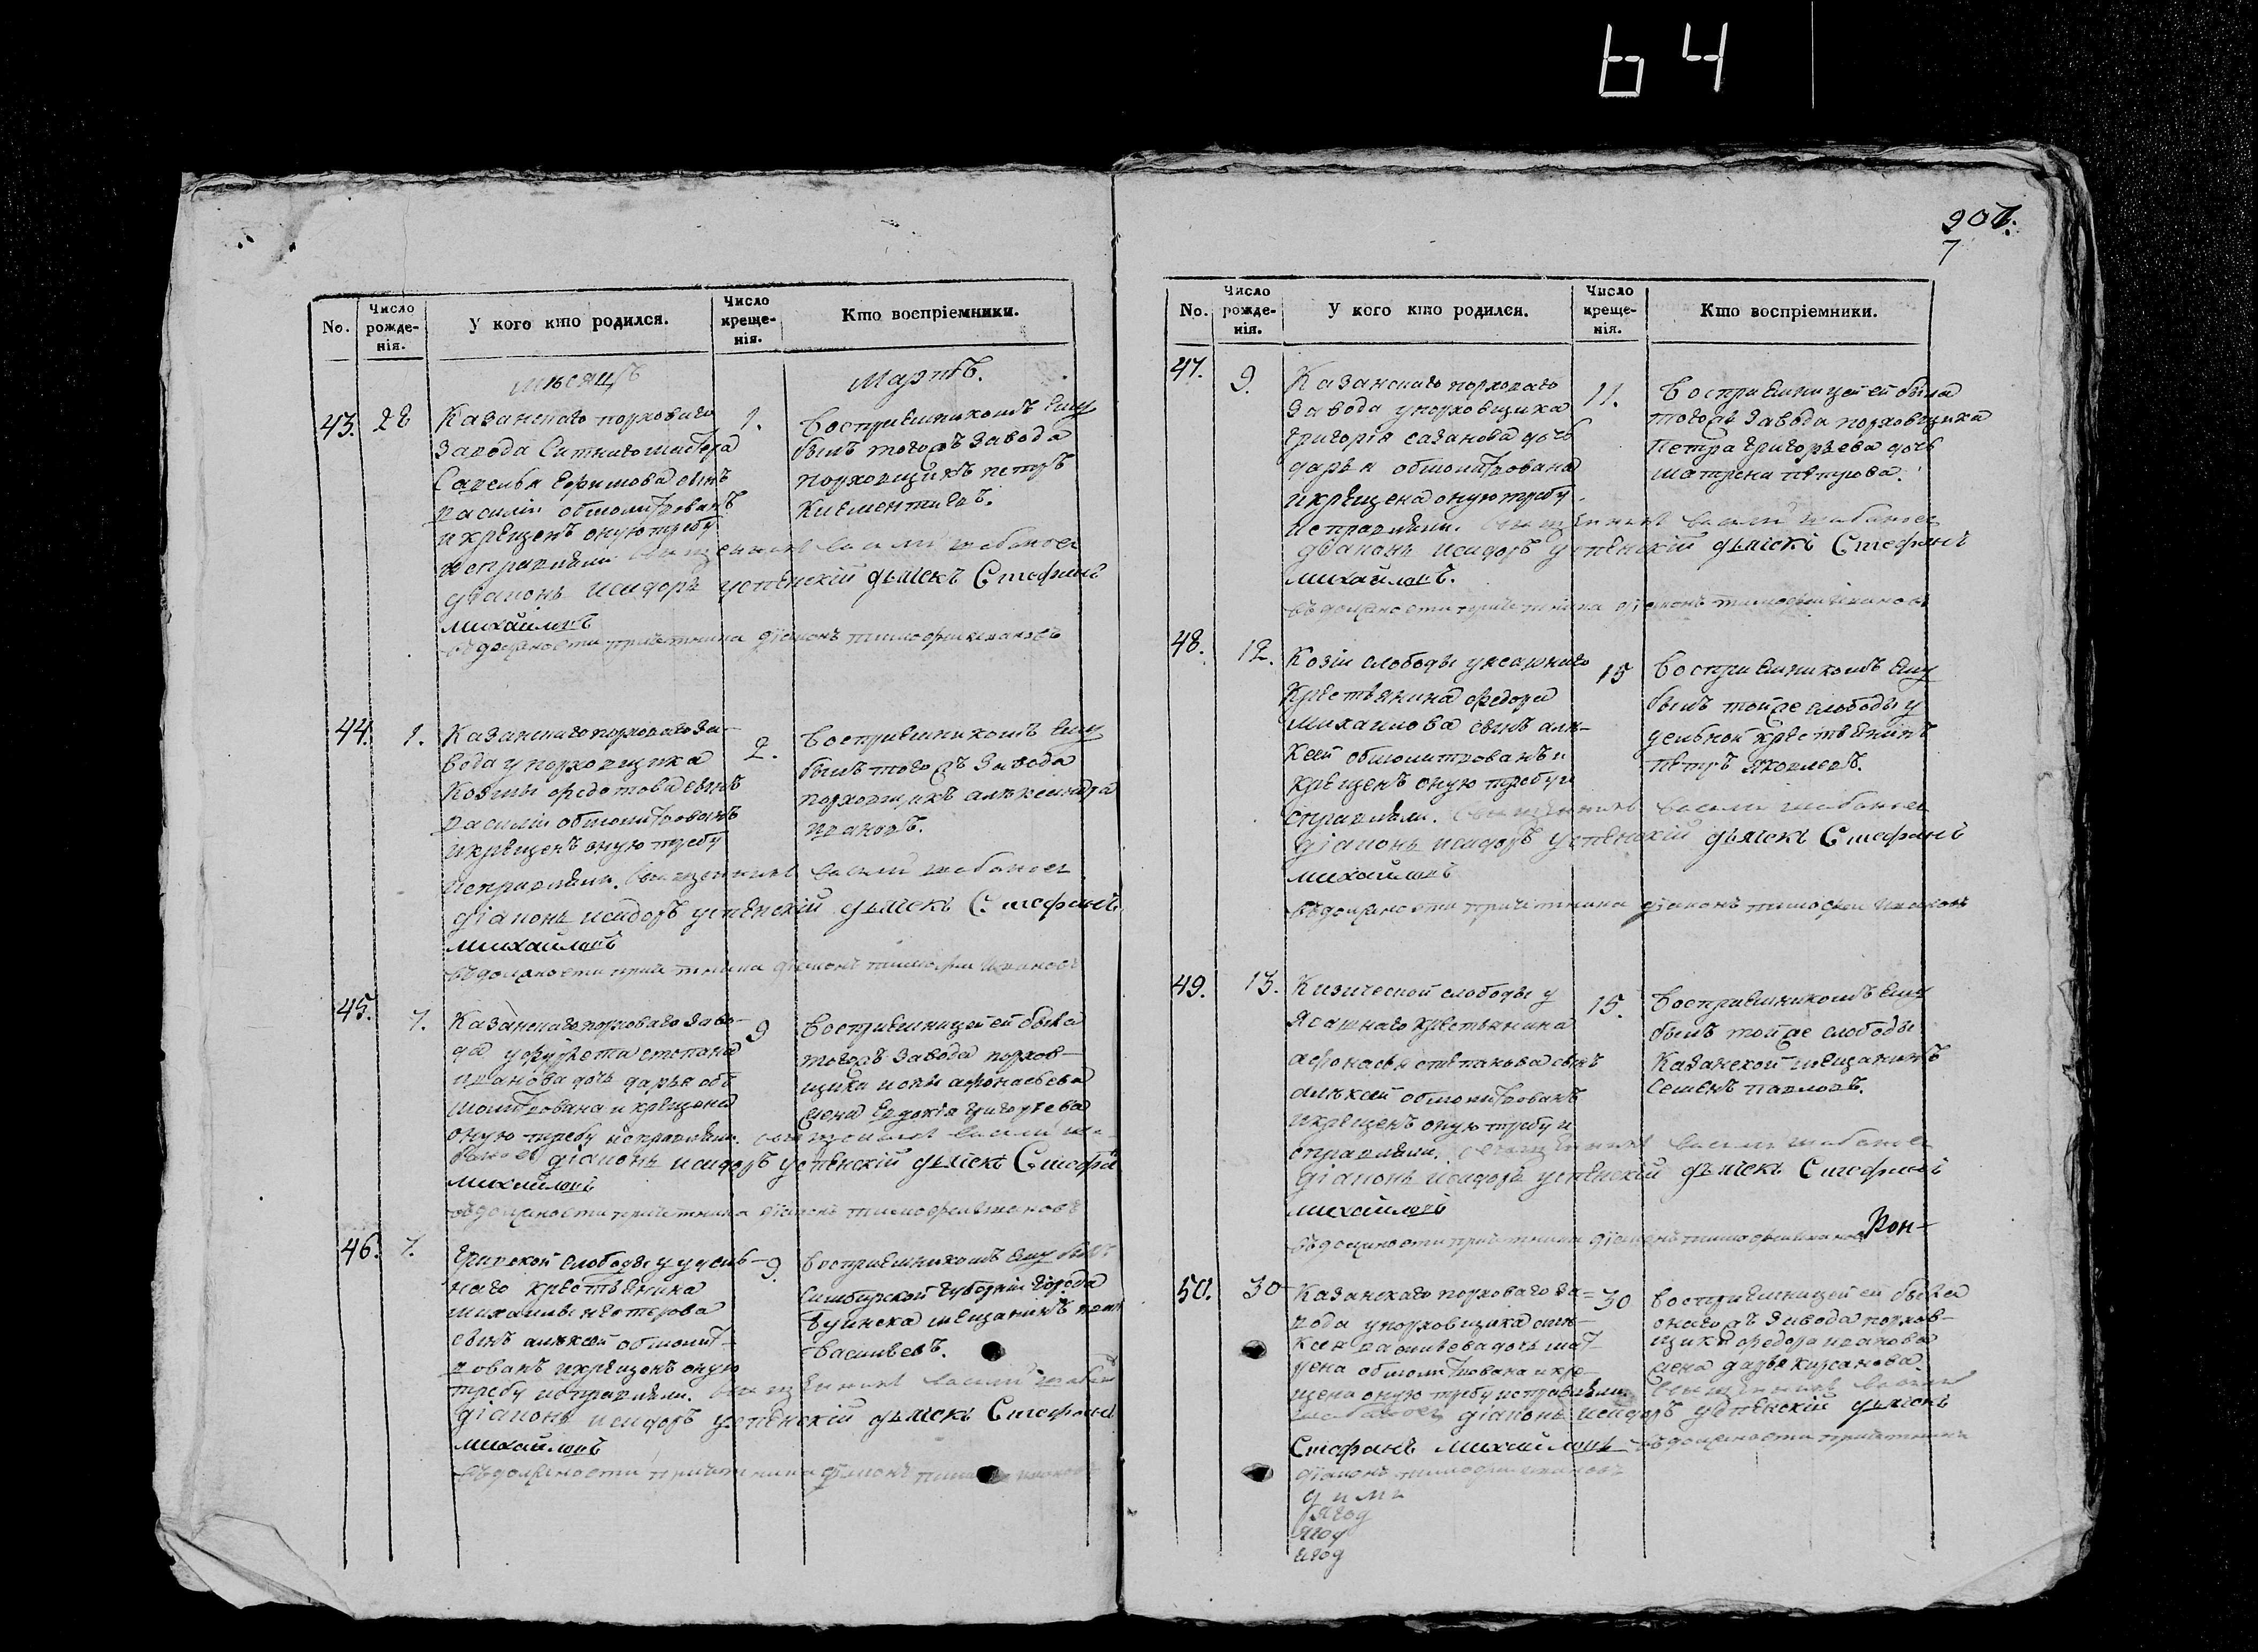 64
No.
Число рожде-нія.
У кого кто родился.
Число креще-нія.
Кто воспріемники.
мѣсяцъ
Мартъ.
43. 28
Казанскаго пороховаго
завода Ситнаго мастера
Савелья Ефимова сынъ
василій обмолитвованъ
и крещенъ оную требу
исправляли священникъ василій
діаконъ исидоръ успенскій дьячекъ Стефанъ
михайловъ
въ должности причетника діаконъ тимофей ивановъ
1.
Воспріемникомъ ему
былъ тогожъ завода
пороховщикъ петръ
Климентиевъ.
44. 1.
Казанскаго пороховаго за-
вода у пороховщика
Козмы федотова сынъ
василій обмолитвованъ
и крещенъ оную требу
исправляли. священникъ василій
діаконъ исидоръ успенскій дьячекъ Стефанъ
михайловъ
въ должности причетника діаконъ тимофей ивановъ
2.
Воспріемникомъ ему
былъ тогожъ завода
пороховщикъ александра
ивановъ.
45. 7.
Казанскаго пороховаго заво-
да у степана
иванова дочь дарья об
молитвована и крещена
оную требу исправляли. священникъ василій
діаконъ исидоръ успенскій дьячекъ Стефа
михайловъ
въ должности причетника діаконъ тимофей ивановъ
9
Воспріемницей ей была
тогожъ завода порохов-
щика афонасьева
жена Евдокія григорьева
46. 7.
слободы у удель-
наго крестьянина
михайлы нестерова
сынъ алексей обмолит-
вованъ и крещенъ оную
требу исправляли. священникъ василій
діаконъ исидоръ успенскій дьячекъ Стефанъ
михайловъ
въ должности причетника діаконъ
9.
Воспріемникомъ ему былъ
Симбирской губерніи города
Буинска мещанинъ
васильевъ.
907.
7
No.
Число рожде-нія.
У кого кто родился.
Число креще-нія.
Кто воспріемники.
47. 9.
Казанскаго пороховаго
завода у пороховщика
григорія сазанова дочь
дарья обмолитвована
и крещена оную требу
исправляли. священникъ василій
діаконъ исидоръ успенскій дьячекъ Стефанъ
михайловъ.
въ должности причетника діаконъ тимофей ивановъ
11.
Воспріемницей ей была
тогожъ завода пороховщика
Петра григорьева дочь
матрена петрова.
48. 12.
Козіи слободы у ясашнаго
крестьянина федора
михаилова сынъ алек-
сей обмолитвованъ и
крещенъ оную требу и
справляли. священникъ василій
діаконъ исидоръ успенскій дьячекъ Стефанъ
михайловъ
въ должности причетника діаконъ тимофей ивановъ
15
Воспріемникомъ ему
былъ тойже слободы у
дельной крестьянинъ
петръ яковлевъ.
49. 13.
Кизической слободы у
ясашнаго крестьянина
афонасья степанова сынъ
алексей обмолитвованъ
и крещенъ оную требу и
справляли. священникъ василій
діаконъ исидоръ успенскій дьячекъ Стефанъ
михайловъ
въ должности причетника діаконъ тимофей
15.
Воспріемникомъ ему
былъ тойже слободы
Казанской мещанинъ
Семенъ павловъ.
50. 30
Казанскаго пороховаго за-
вода у пороховщика алек-
сея васильева дочь мат-
рена обмолитвована и кре-
щена оную требу исправляли священникъ василій
діаконъ исидоръ успенскій дьячекъ
Стефанъ михайловъ въ должности причетника
діаконъ тимофей ивановъ
30
Воспріемницей ей была
онагожъ завода порохов-
щика федора иванова
жена дарья кирсанова.